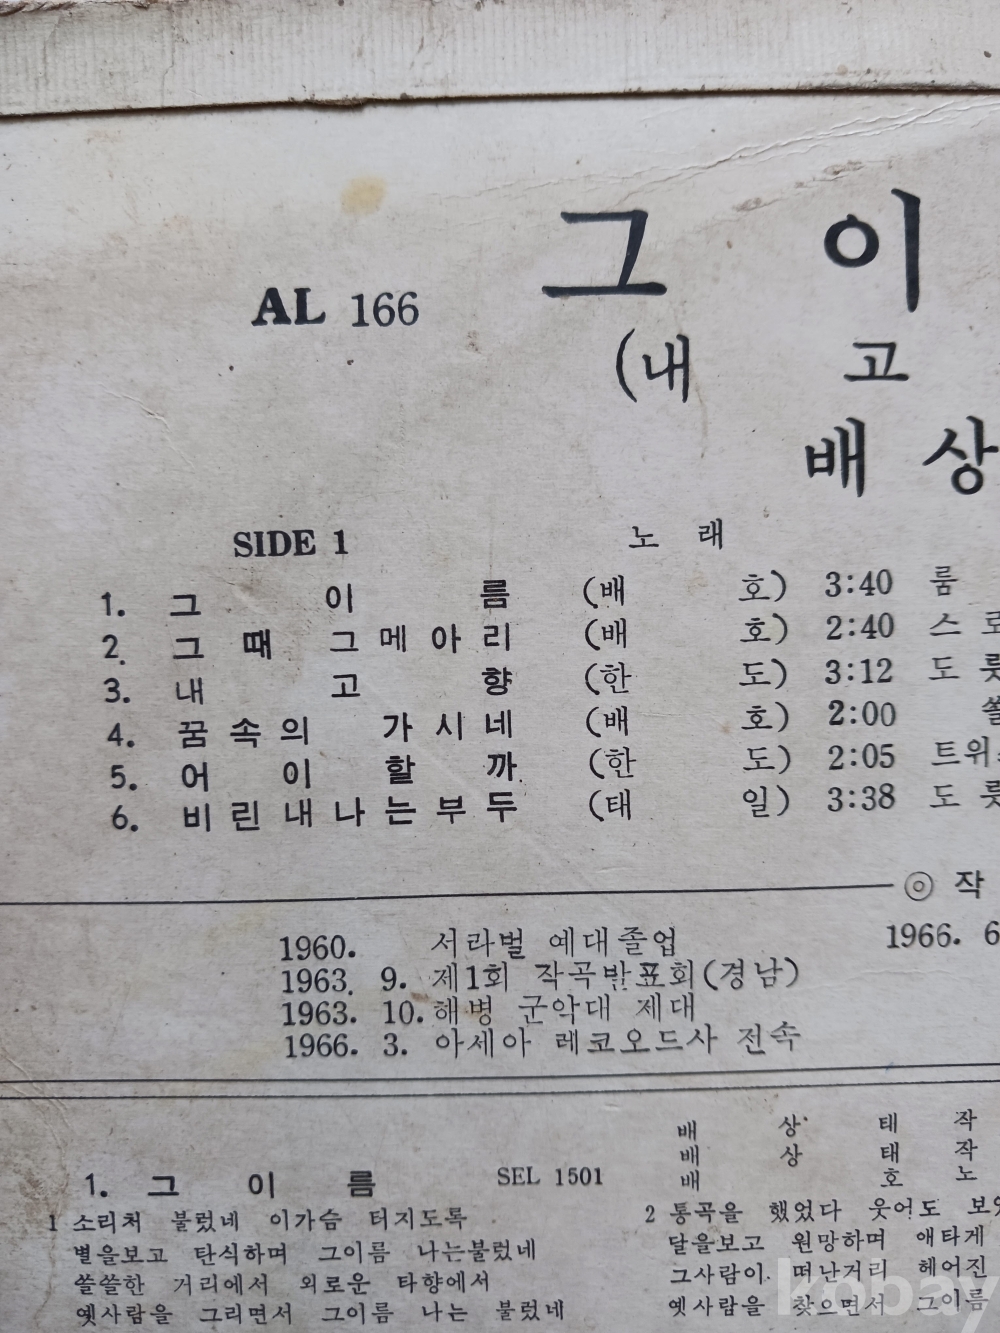 AL 166
그 이
(내 고
배 상
SIDE 1 노 래
1. 그 이 름 (배 호) 3:40 룸
2. 그 때 그 메 아 리 (배 호) 2:40 스 로
3. 내 고 향 (한 도) 3:12 도 롯
4. 꿈 속 의 가 시 네 (배 호) 2:00 쏠
5. 어 이 할 까 (한 도) 2:05 트위스
6. 비 린 내 나 는 부 두 (태 일) 3:38 도 롯
◎ 작
1960. 서라벌 예대졸업 1966. 6
1963. 9. 제1회 작곡발표회(경남)
1963. 10. 해병 군악대 제대
1966. 3. 아세아 레코오드사 전속
배 상 태 작
배 상 태 작
배 호 노
1. 그 이 름 SEL 1501
1 소리처 불렀네 이가슴 터지도록
별을보고 탄식하며 그이름 나는불렀네
쓸쓸한 거리에서 외로운 타향에서
옛사람을 그리면서 그이름 나는 불렀네
2 통곡을 했었다 웃어도 보았
달을보고 원망하며 애타게
그사람이 떠난거리 헤어진
옛사람을 찾으면서 그이름
kobay